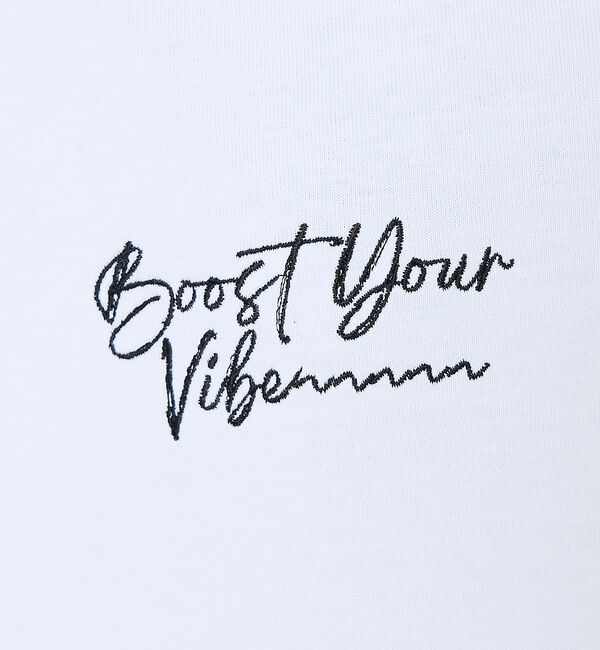 Boost Your
Vibe